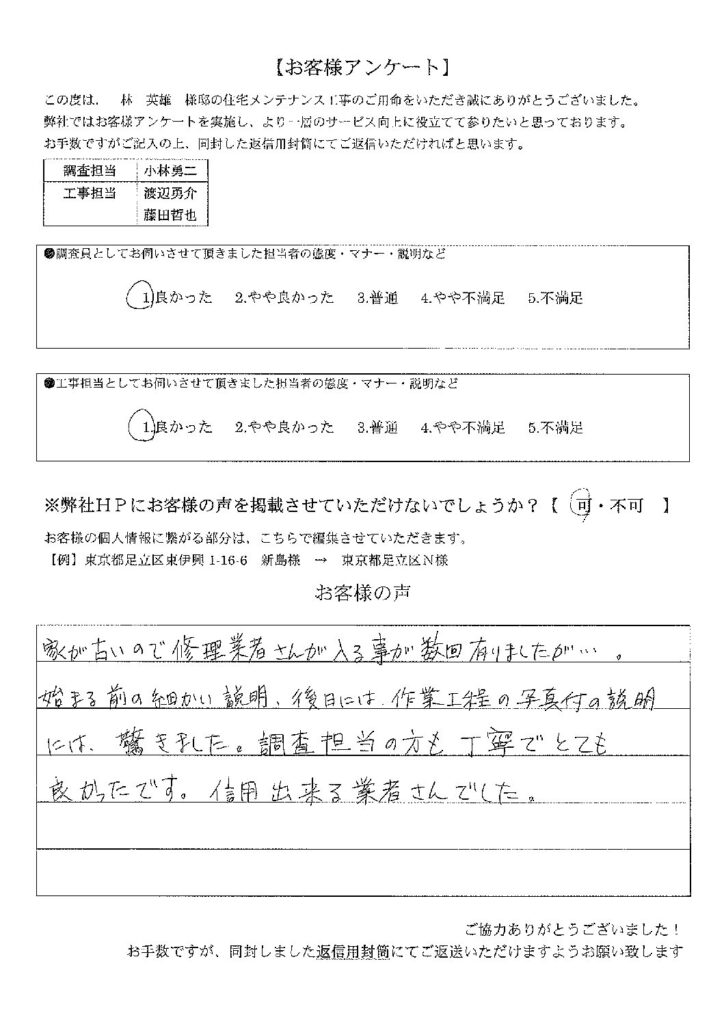 【お客様アンケート】
この度は、 林 英雄 様邸の住宅メンテナンス工事のご用命をいただき誠にありがとうございました。
弊社ではお客様アンケートを実施し、より一層のサービス向上に役立てて参りたいと思っております。
お手数ですがご記入の上、同封した返信用封筒にてご返信いただければと思います。
調査担当 小林勇二
工事担当 渡辺勇介
藤田哲也
●調査員としてお伺いさせて頂きました担当者の態度・マナー・説明など
1.良かった 2.やや良かった 3.普通 4.やや不満足 5.不満足
●工事担当としてお伺いさせて頂きました担当者の態度・マナー・説明など
1.良かった 2.やや良かった 3.普通 4.やや不満足 5.不満足
※弊社HPにお客様の声を掲載させていただけないでしょうか？【 可・不可 】
お客様の個人情報に繋がる部分は、こちらで編集させていただきます。
【例】東京都足立区東伊興 1-16-6 新島様 → 東京都足立区N様
お客様の声
家が古いので修理業者さんが入る事が数回有りましたが…。
始まる前の細かい説明、後日には、作業工程の写真付の説明
には、驚きました。調査担当の方も丁寧でとても
良かったです。信用出来る業者さんでした。
ご協力ありがとうございました！
お手数ですが、同封しました返信用封筒にてご返送いただけますようお願い致します